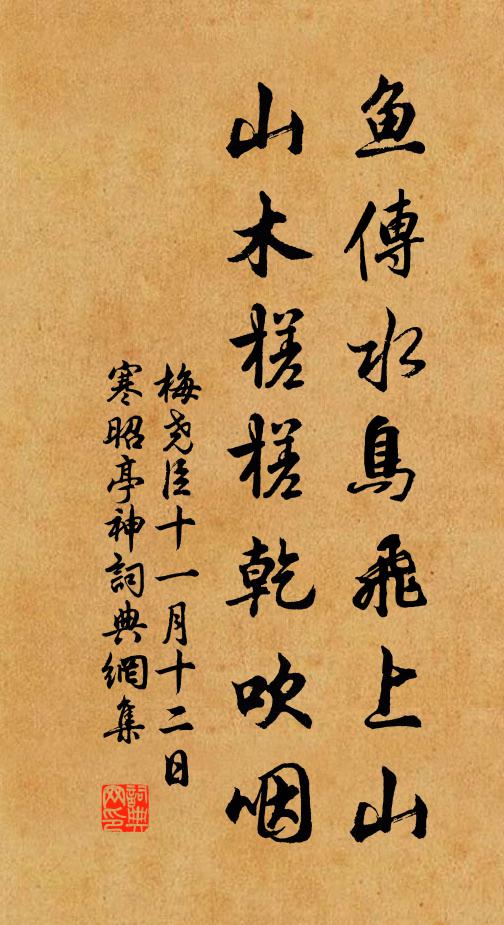 魚傳水鳥飛上山
山木槎槎乾吹咽
梅尧臣十一月十二日
寒昭亭神詞典網集
詞典网印